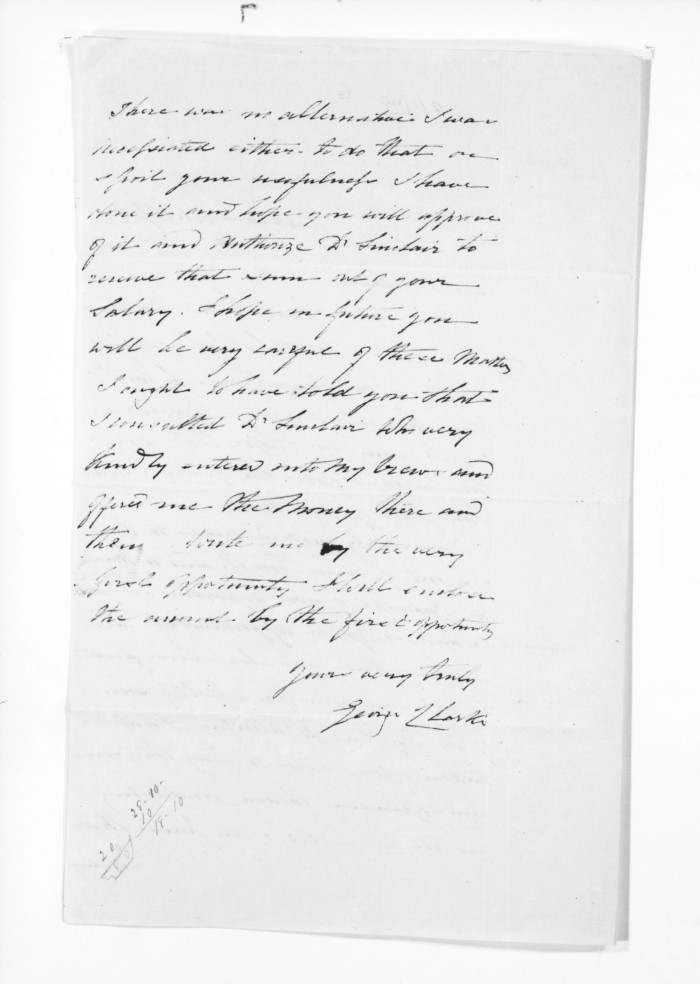 There was no alternative I was
necessiated either to do that or
spoil your usefulness I have
done it and hope you will approve
of it and Authorize Dr Sinclair to
receive that sum out of your
Salary. I hope in future you
will be very careful of these Matters
I ought to have told you that
I consulted Dr Sinclair who very
kindly entered into my views and
offered me the Money there and
then write me by the very
first opportunity I shall enclose
the amount by the first opportunity
Yours very truly
George Clarke
28.10.
10
18.10
20